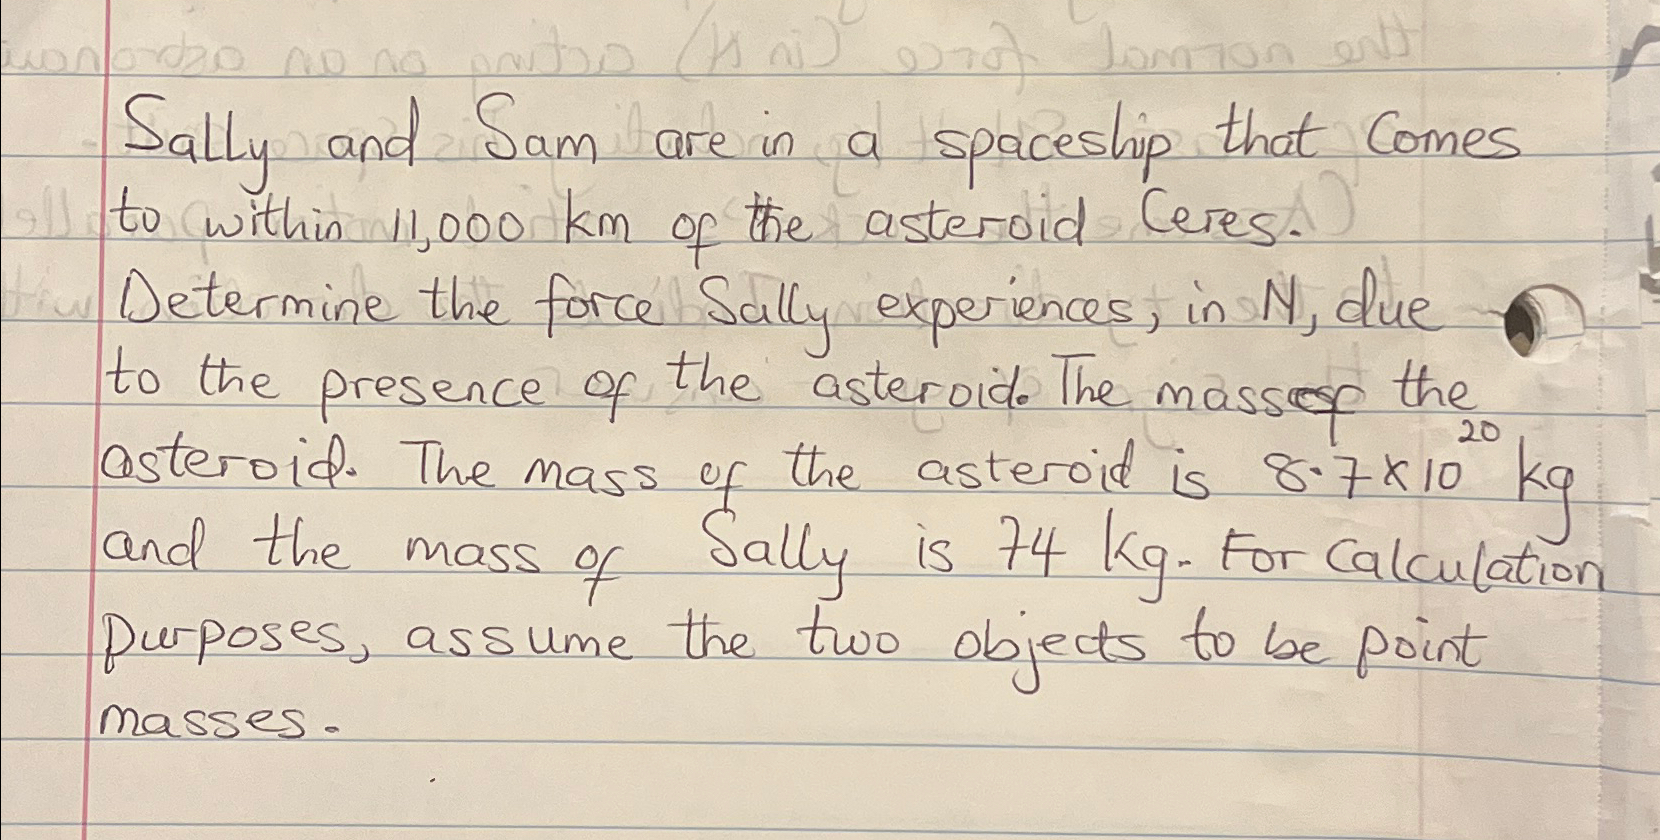 Sally and Sam are in a spaceship that comes
to within 11,000 km of the asteroid Ceres.
Determine the force Sally experiences, in N, due
to the presence of the asteroid. The mass of the
asteroid. The mass of the asteroid is 8.7×10²⁰ kg
and the mass of Sally is 74 kg. For Calculation
purposes, assume the two objects to be point
masses.